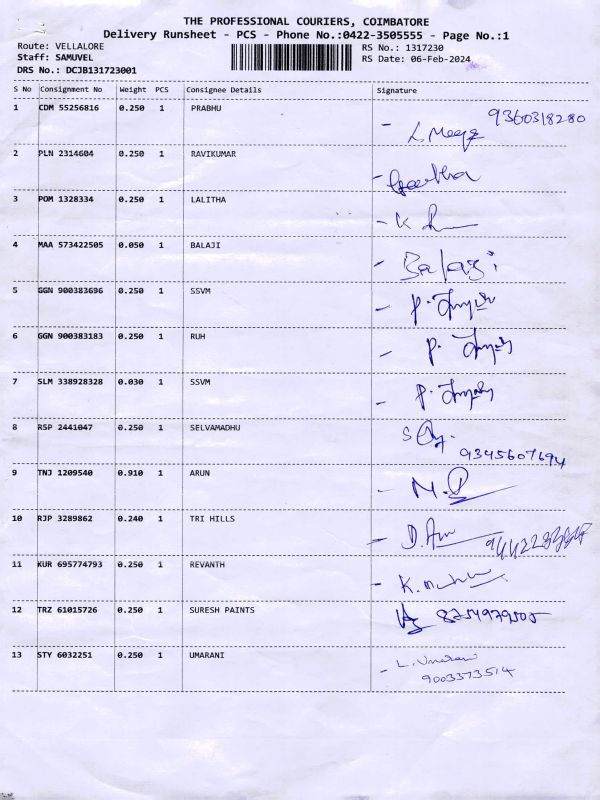 THE PROFESSIONAL COURIERS, COIMBATORE
Delivery Runsheet - PCS - Phone No.:0422-3505555 - Page No.:1
Route: VELLALORE
Staff: SAMUVEL
DRS No.: DCJB131723001
RS No.: 1317230
RS Date: 06-Feb-2024
S No Consignment No Weight PCS Consignee Details Signature
1 CDM 55256816 0.250 1 PRABHU 9360318280
2 PLN 2314604 0.250 1 RAVIKUMAR
3 POM 1328334 0.250 1 LALITHA
4 MAA 573422505 0.050 1 BALAJI Balaji
5 GGN 900383696 0.250 1 SSVM
6 GGN 900383183 0.250 1 RUH
7 SLM 338928328 0.030 1 SSVM
8 RSP 2441047 0.250 1 SELVAMADHU
9345607694
9 TNJ 1209540 0.910 1 ARUN
10 RJP 3289862 0.240 1 TRI HILLS
11 KUR 695774793 0.250 1 REVANTH
12 TRZ 61015726 0.250 1 SURESH PAINTS 8754979505
13 STY 6032251 0.250 1 UMARANI L. Umarani
9003373514